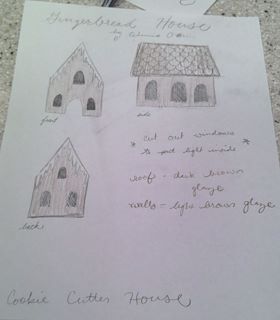 Gingerbread House
by
front
side
* cut out windows *
to put light inside
roof - dark brown
glaze
walls - light brown glaze
back
Cookie Cutter House